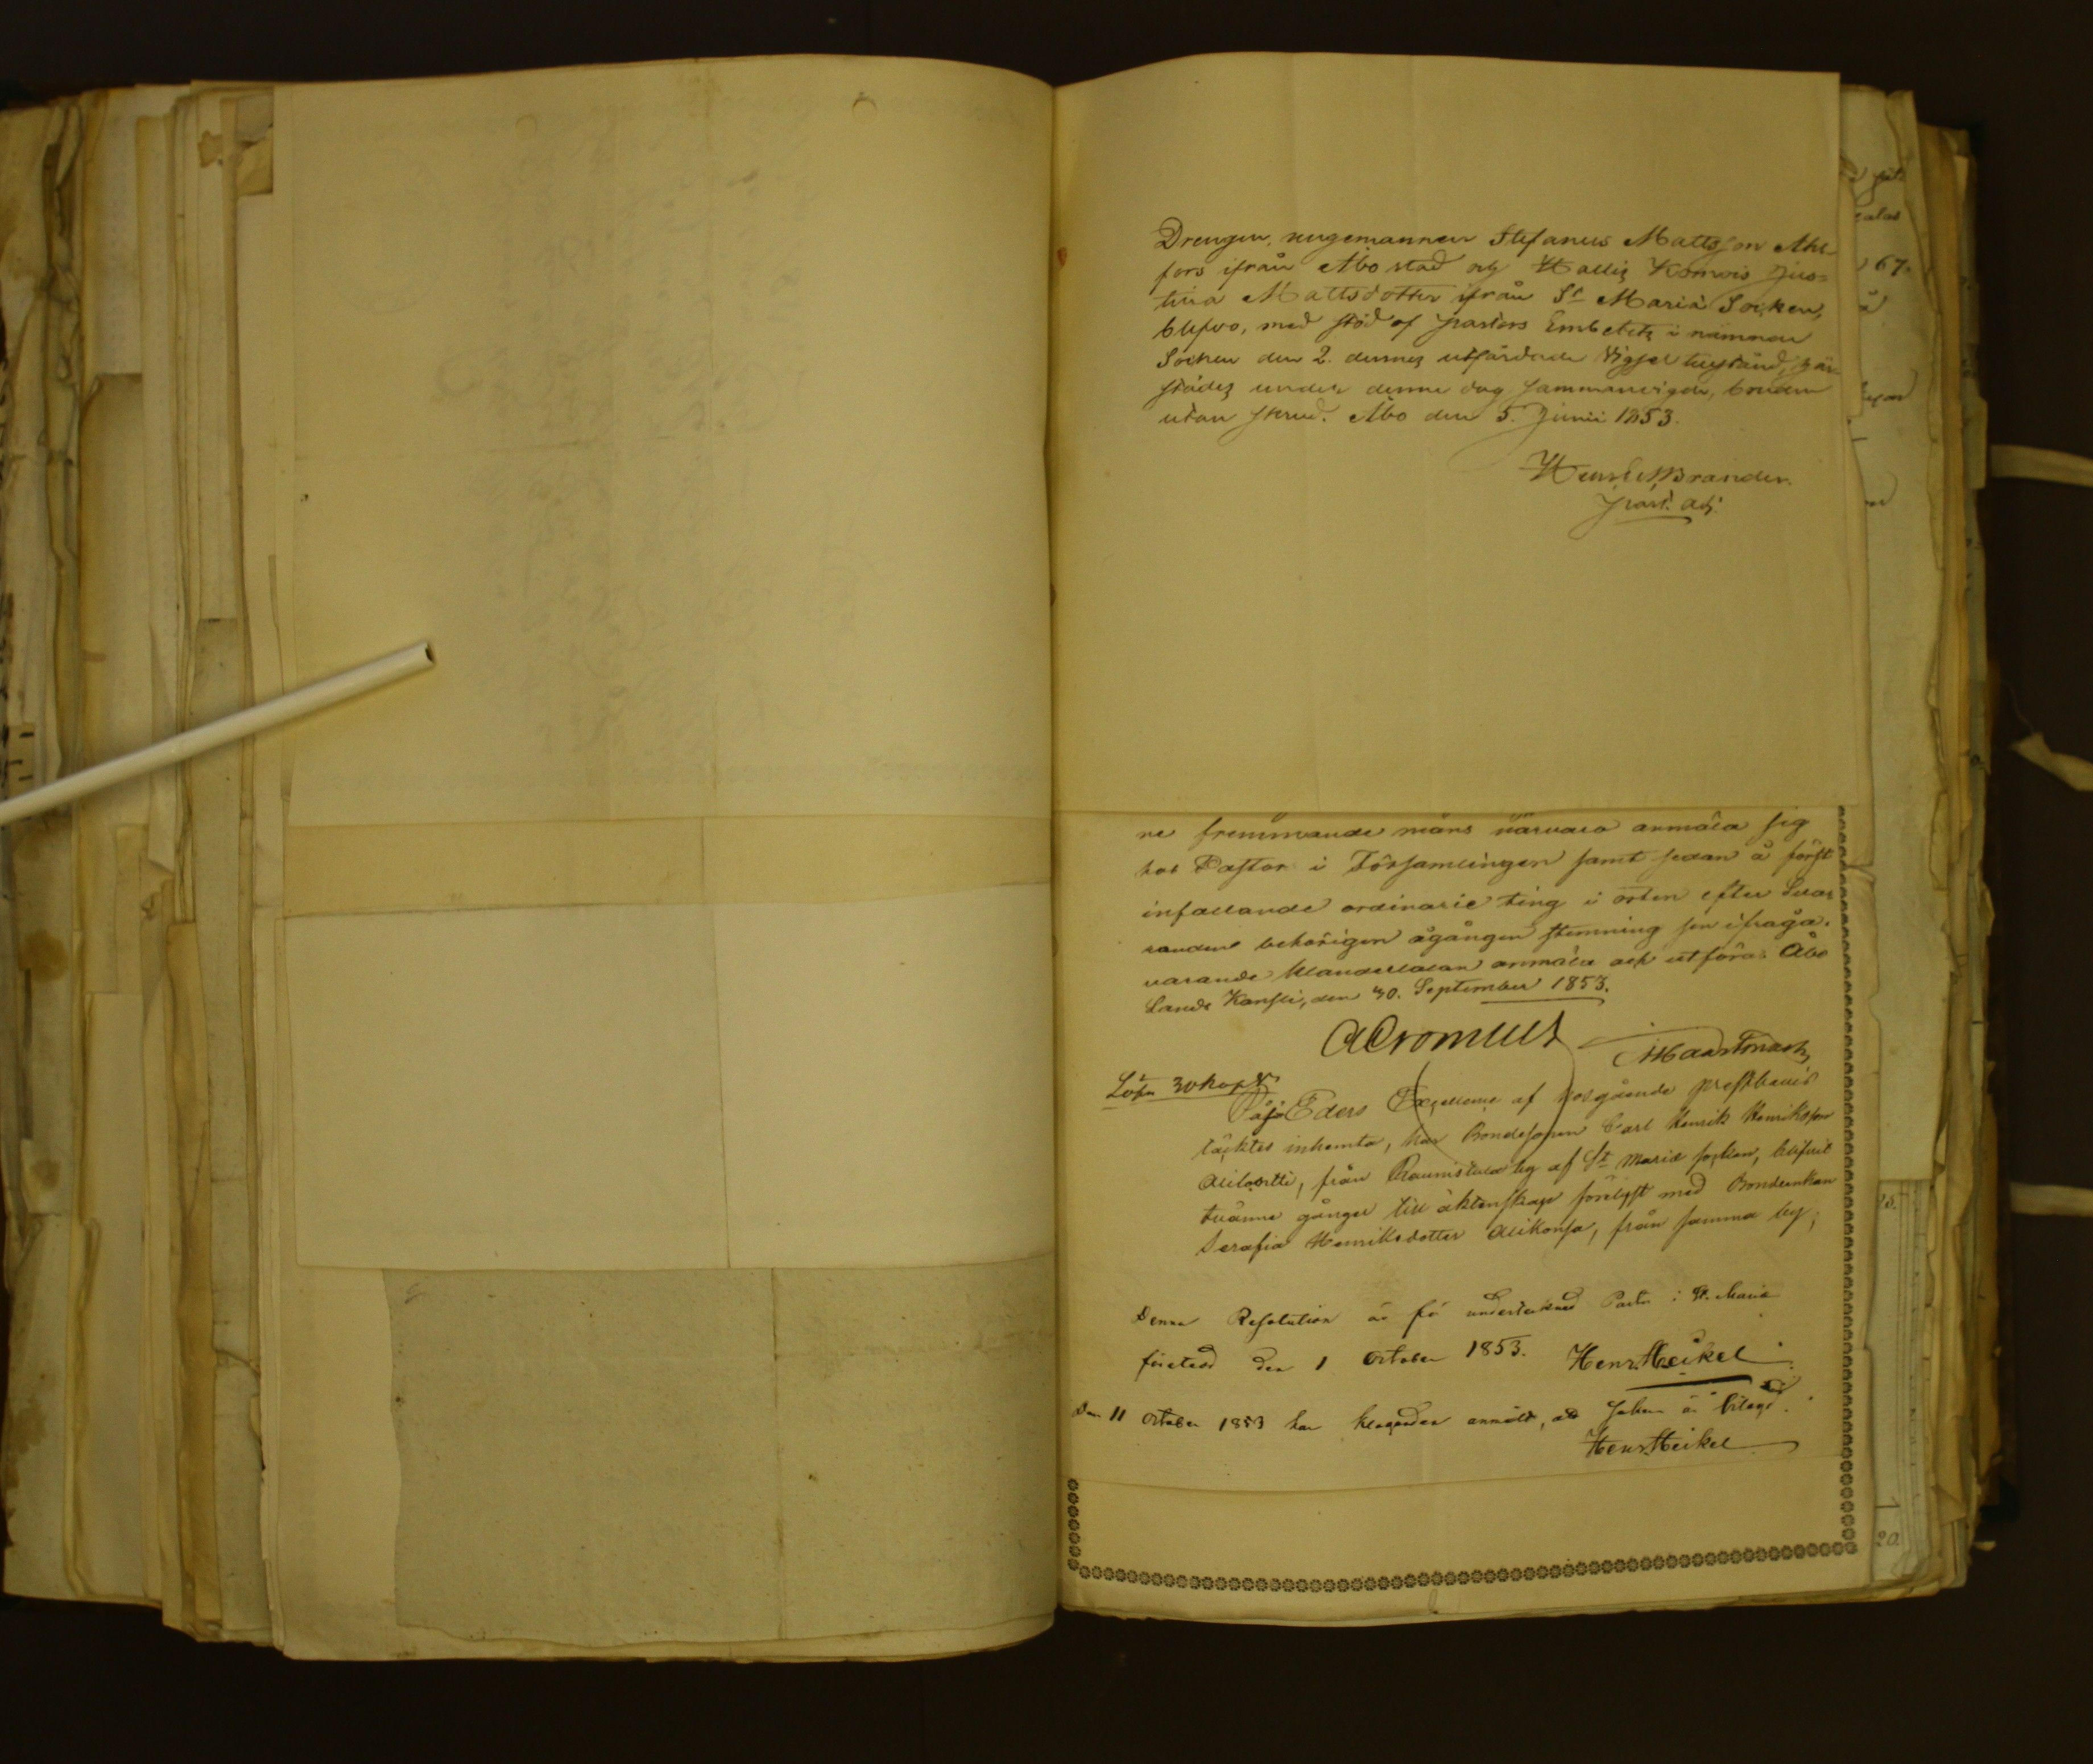 Drengen, ungemannen Stefanus Mattsson Ahl-
fors ifrån Åbo stad och Jus-
tina Mattsdotter ifrån St Mariæ Socken,
blefvo, med stöd af Pastors Embetets i nämnde
Socken den 2. dennes utfärdade tillstånd, här-
städes under denne dag sammanvigde, bruden
utan skrud. Åbo den 5. Junii 1853.
Henr. Brander.
Past. adj.
ne fremmande mäns närvaro anmäla sig
hos Pastor i Församlingen samt sedan å först
infallande ordinarie ting i orten efter Sva-
randen behörigen ågången stemning sin ifråga-
varande klandertalan anmäla och utföra. Åbo
Lands Kansli, den 30. September 1853.
ACronstedt
Lösen 30 kop Sr
Eders Excellence af forgående prestbevis
täcktes inhemta, har Bondesonen Carl Henrik Henriksson
från Raunistula by af St Mariæ socken, blifvit
tvänne gånger till äktenskap förelyst med Bondeenkan
Serafia Henriksdotter Alikonsa, från samma by;
Denna Resolution är för undertecknad Pastor i St. Mariæ
företedd den 1 October 1853. Henr. Heikel
Den 11 October 1853 har klaganden anmält, att saken är bilagd.
Henr. Heikel
67.
20